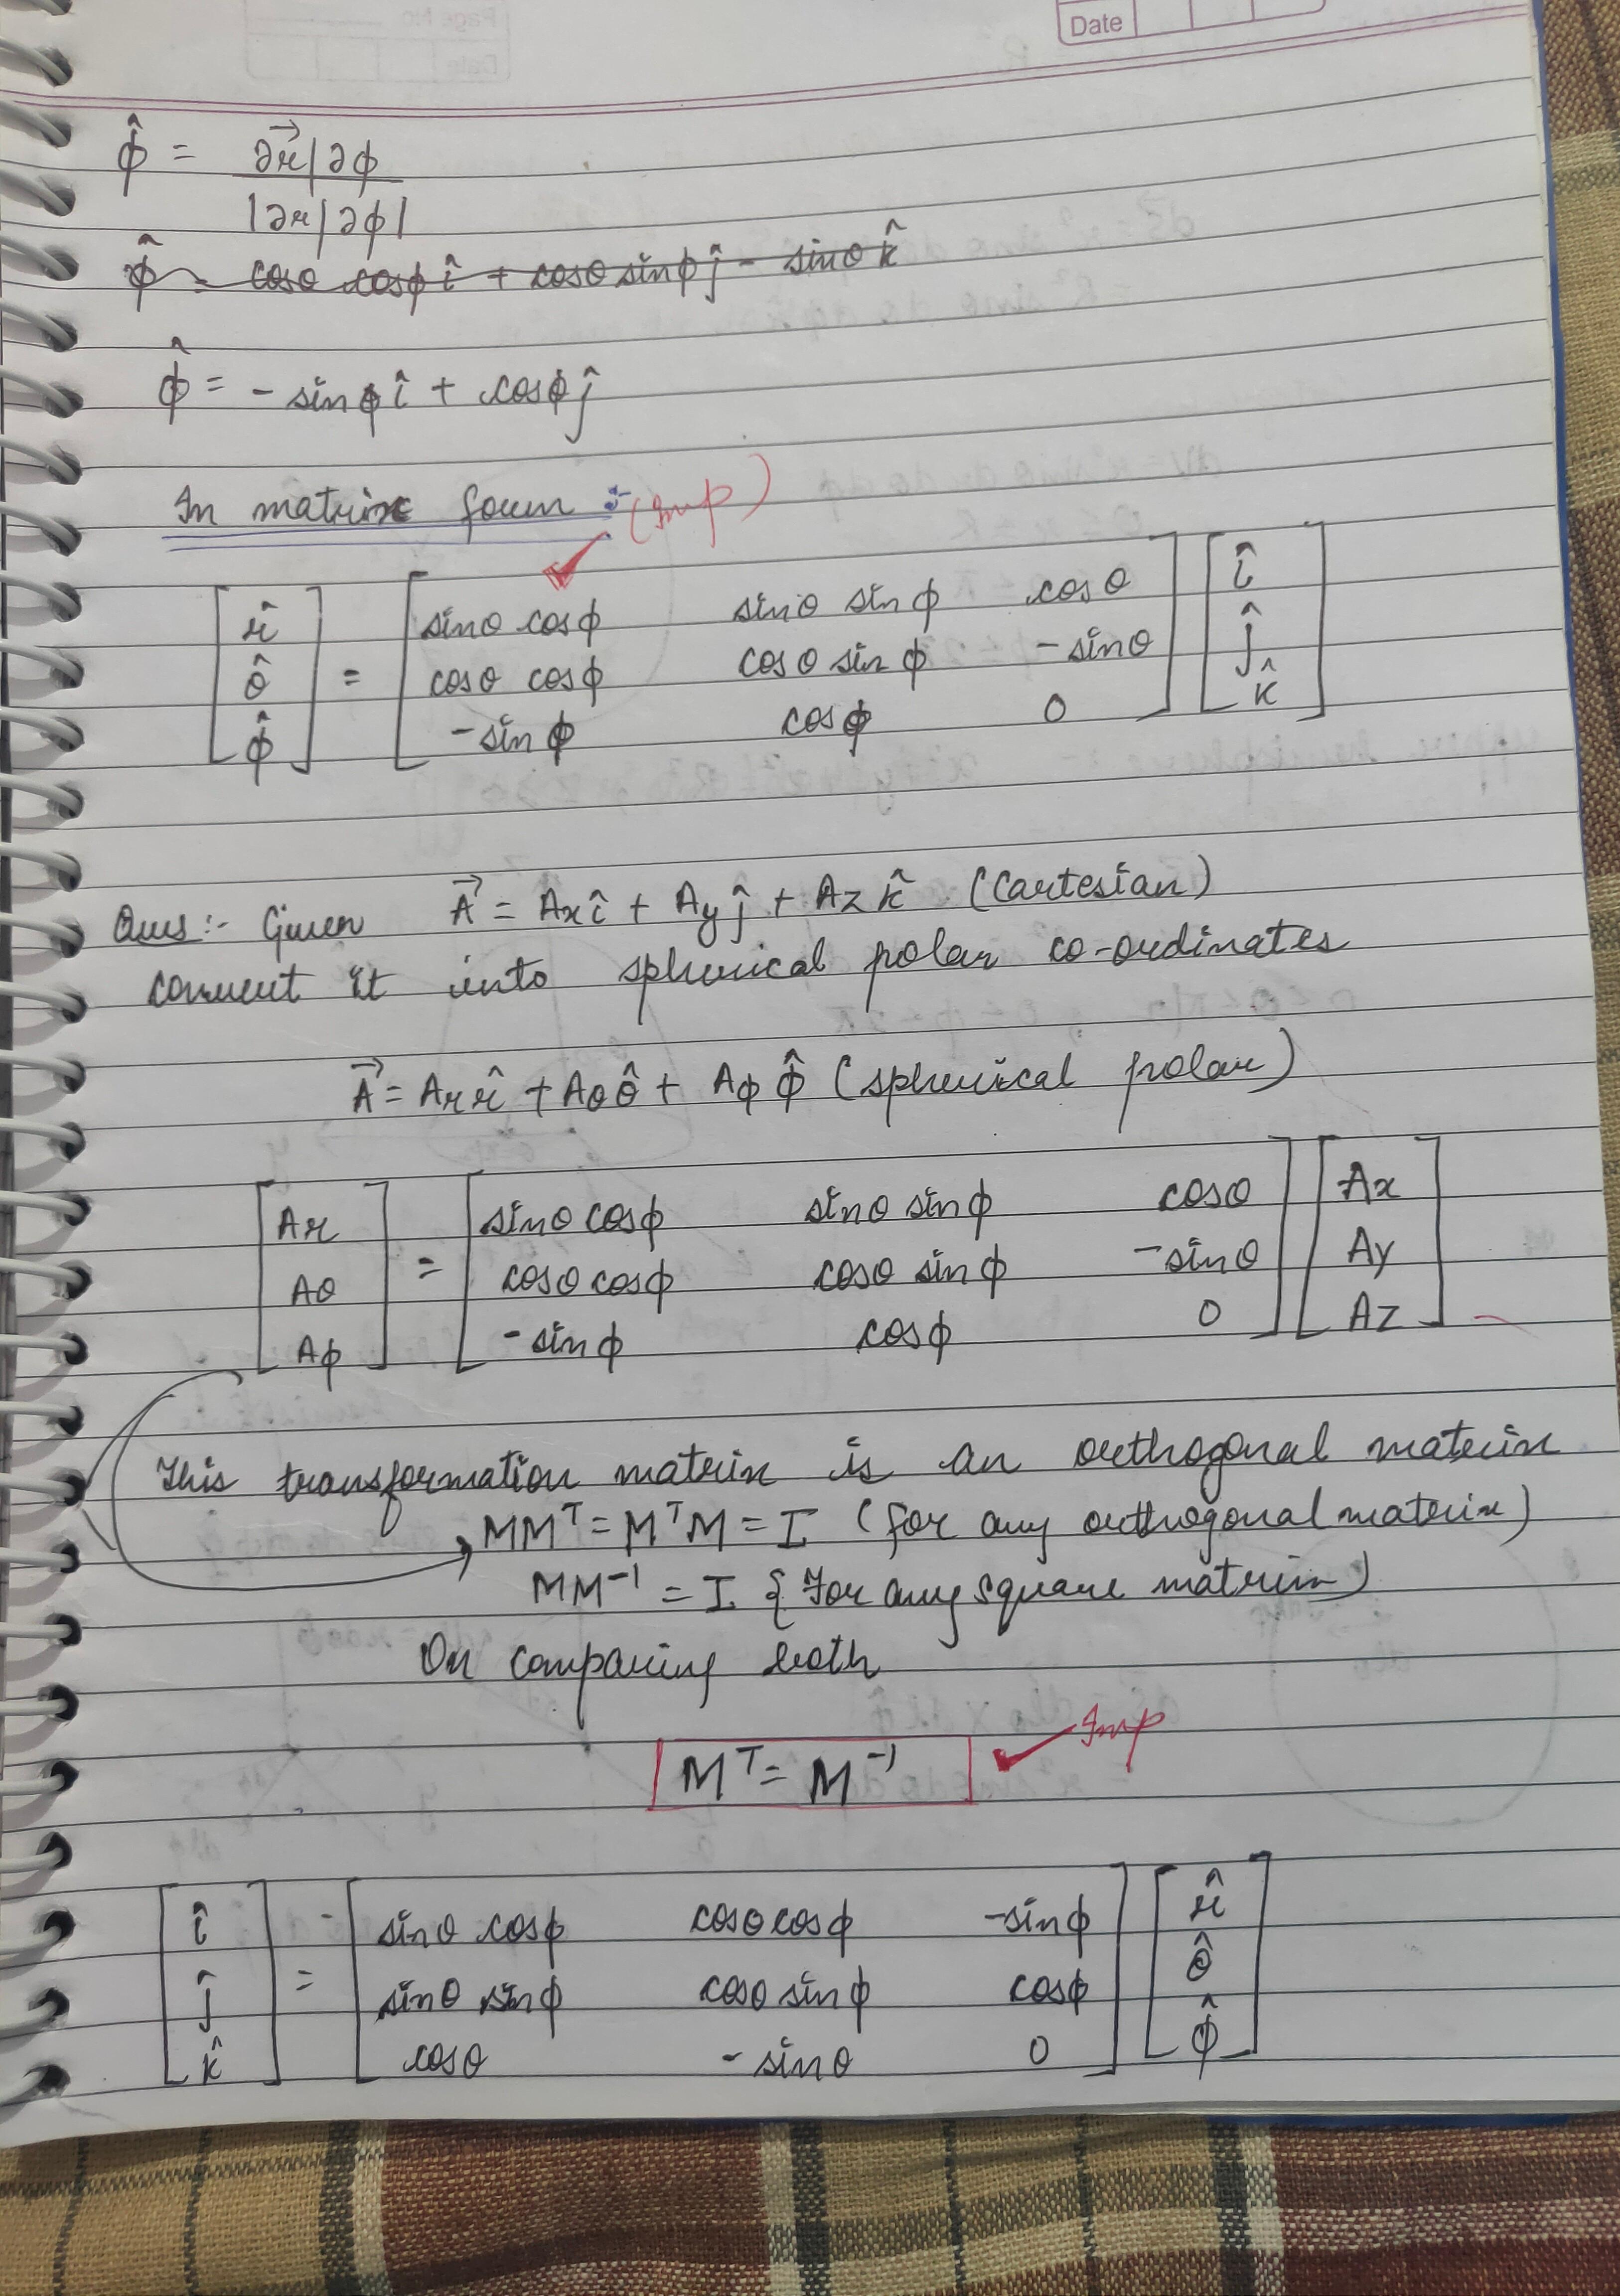 Date
φ̂ = ∂r⃗/∂φ
|∂r/∂φ|
φ̂ = cosθ cosφ î + cosθ sinφ ĵ - sinθ k̂
φ̂ = - sinφ î + cosφ ĵ
In matrix form :- (Imp)
[r̂] = [sinθ cosφ sinθ sinφ cosθ] [î]
[θ̂] [cosθ cosφ cosθ sinφ -sinθ] [ĵ]
[φ̂] [-sinφ cosφ 0] [k̂]
Ques:- Given A⃗ = Axî + Ayĵ + Azk̂ (Cartesian)
convert it into spherical polar co-ordinates
A⃗ = Ar r̂ + Aθ θ̂ + Aφ φ̂ (spherical polar)
[Ar] = [sinθ cosφ sinθ sinφ cosθ] [Ax]
[Aθ] [cosθ cosφ cosθ sinφ -sinθ] [Ay]
[Aφ] [-sinφ cosφ 0] [Az]
This transformation matrix is an orthogonal matrix
MMᵀ = MᵀM = I (for any orthogonal matrix)
MM⁻¹ = I {For any square matrix)
On comparing both
Mᵀ = M⁻¹ Imp
[î] = [sinθ cosφ cosθ cosφ -sinφ] [r̂]
[ĵ] [sinθ sinφ cosθ sinφ cosφ] [θ̂]
[k̂] [cosθ -sinθ 0] [φ̂]